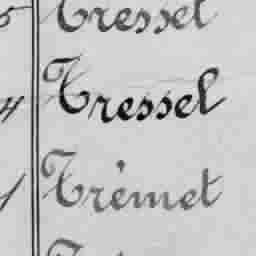 Tressel
Tressel
Trémet